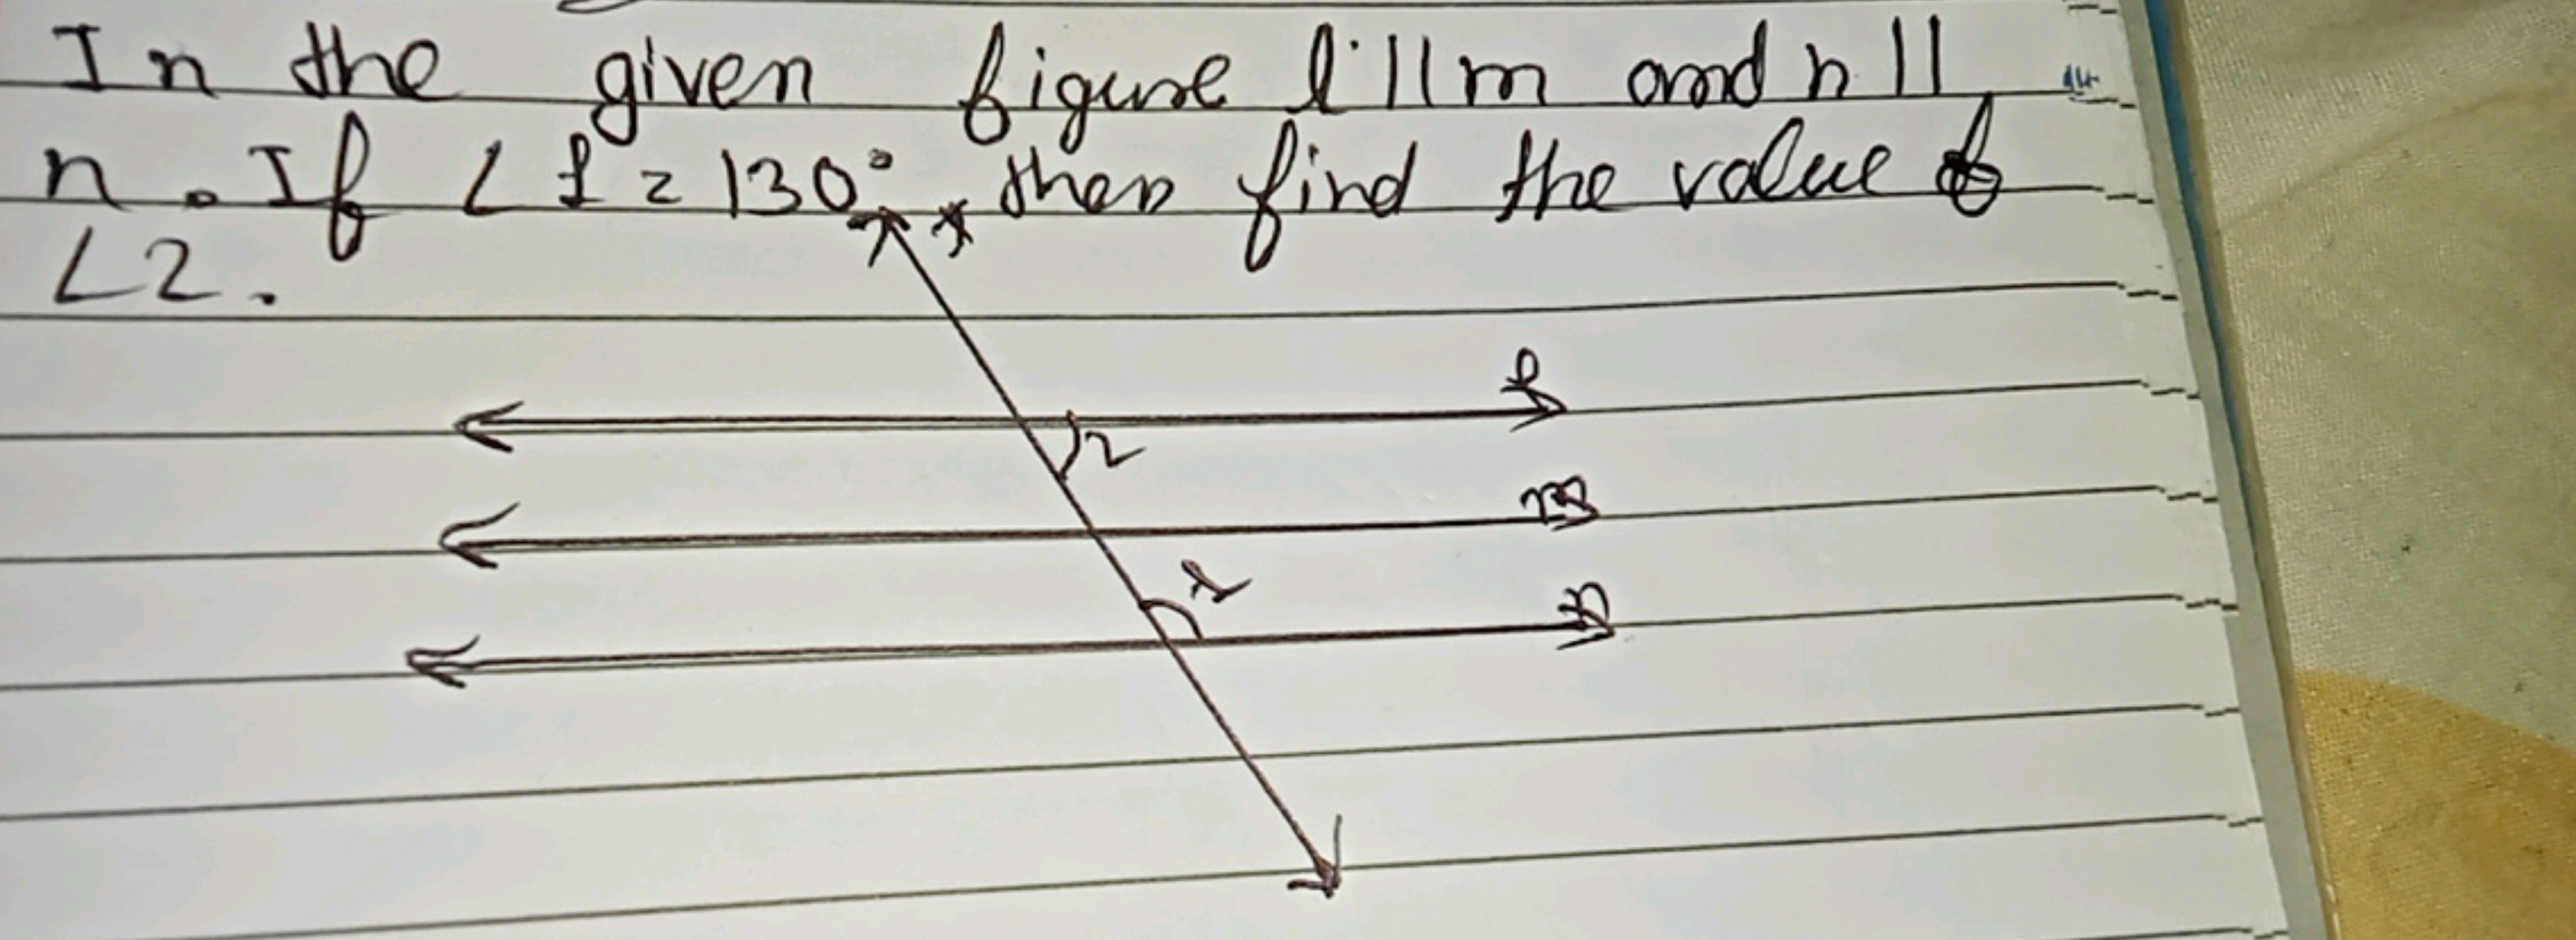 In the given figure l || m and n ||
n. If ∠1 = 130°, then find the value of
∠2.
l
2
m
1
n